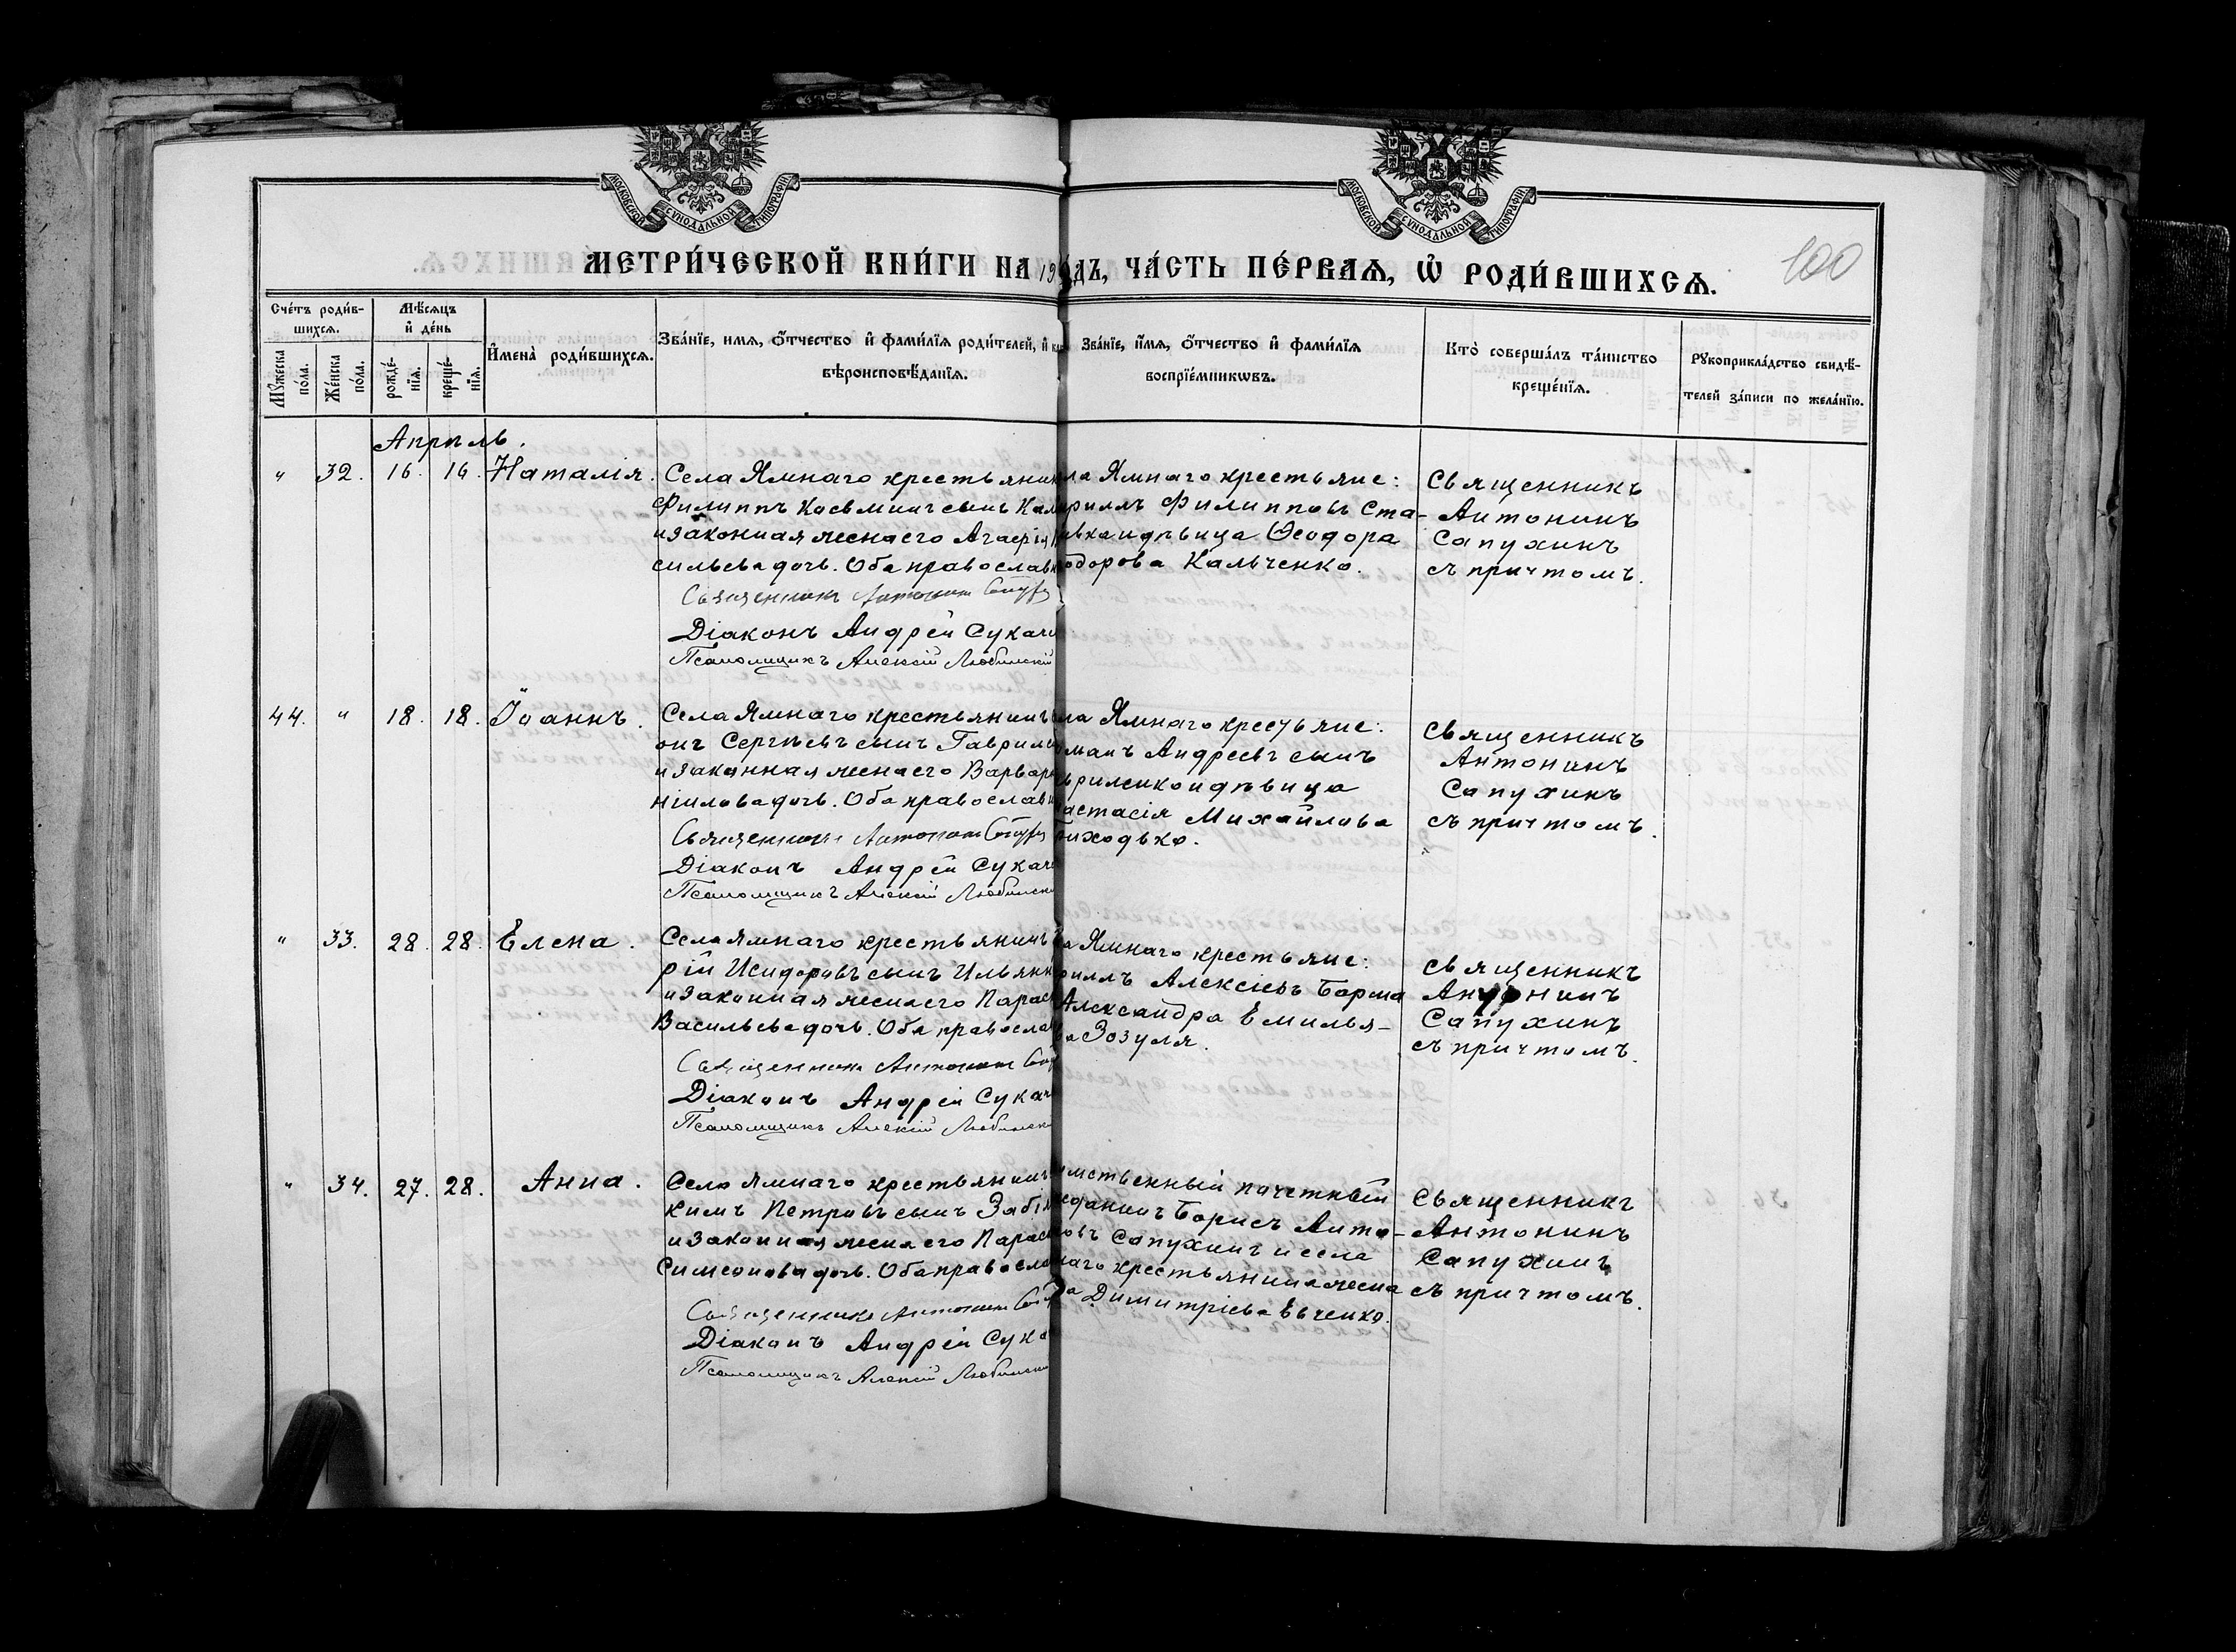 МОСКОВСКОЙ СѴНОДАЛЬНОЙ ТИПОГРАФІИ
МОСКОВСКОЙ СѴНОДАЛЬНОЙ ТИПОГРАФІИ
МЕТРИ́ЧЕСКОЙ КНИ́ГИ НА 19
ДЪ, ЧА́СТЬ ПЕ́РВАѦ, Ѡ҆ РОДИ́ВШИХСѦ.
100
Сче́тъ роди́в-
шихсѧ.
Мꙋ́жеска по́ла.
Же́нска по́ла.
Мѣ́сѧцъ
и҆ де́нь
рожде́-
нїѧ.
креще́-
нїѧ.
И҆мена̀ роди́вшихсѧ.
Зва́нїе, имѧ, ѻ҆́тчество и҆ фами́лїѧ роди́телей, и҆
вѣроисповѣ́данїѧ.
Зва́нїе, и҆́мѧ, ѻ҆́тчество и҆ фами́лїѧ
воспрїе́мникѡвъ.
Кто̀ соверша́лъ та́инство
креще́нїѧ.
Рꙋкоприкла́дство свидѣ́-
телей за́писи по жела́нїю.
Апрѣль.
" 32. 16. 16. Наталія.
Села Ямнаго крестьянин
Филиппъ Косьминъ сынъ Кал
и законная жена его Агафія
сильева дочь. Оба православн
Священникъ Антонин Сапух
Діаконъ Андрей Сукаче
Псаломщикъ Алексій Любинскій
ла Ямнаго крестьяне:
риллъ Филипповъ Ста-
ивка и дѣвица Ѳеодора
одорова Кальченко.
Священникъ
Антонинъ
Сапухинъ
съ причтомъ.
44. " 18. 18. Іоаннъ.
Села Ямнаго крестьянинъ
онъ Сергѣевъ сынъ Гаврилен
и законная жена его Варвар
ніилова дочь. Оба православн
Священникъ Антонин Сапух
Діаконъ Андрей Сукаче
Псаломщикъ Алексій Любински
ла Ямнаго крестьяне:
оманъ Андреевъ сынъ
вриленко и дѣвица
астасія Михайлова
иходько.
Священникъ
Антонинъ
Сапухинъ
съ причтомъ.
" 33. 28. 28. Елена.
Села Ямнаго крестьянинъ
рій Исидоровъ сынъ Ильянк
и законная жена его Параск
Васильева дочь. Оба православ
Священникъ Антонин Сапу
Діаконъ Андрей Сукач
Псаломщикъ Алексій Любински
ла Ямнаго крестьяне:
риллъ Алексіевъ Борма
Александра Емилья-
ва Зозуля.
Священникъ
Антонинъ
Сапухинъ
съ причтомъ.
" 34. 27. 28. Анна.
Села Ямнаго крестьянинъ
кимъ Петровъ сынъ Забі
и законная жена его Параск
Симеонова дочь. Оба православ
Священникъ Антонин Сапу
Діаконъ Андрей Сука
Псаломщикъ Алексій Любински
мственный почетный
жданинъ Борисъ Анто-
овъ Сапухинъ и села
наго крестьянина жена
а Димитріева Евченко.
Священникъ
Антонинъ
Сапухинъ
съ причтомъ.